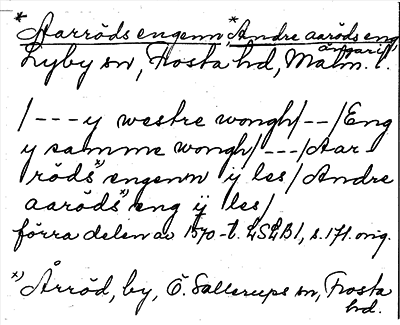 *Aarröds engenn, *Andre aaröds eng,
Lyby sn, Frosta hd, Malm. l.
/---y westre wongh/--/Eng
y samme wongh/---/Aar
röds*) engenn ÿ les/Andre
aaröds*) eng ÿ les/
förra delen av 1570-t. LSLB1, s. 171. orig.
*) Årröd, by, Ö. Sallerups sn, Frosta
hd.